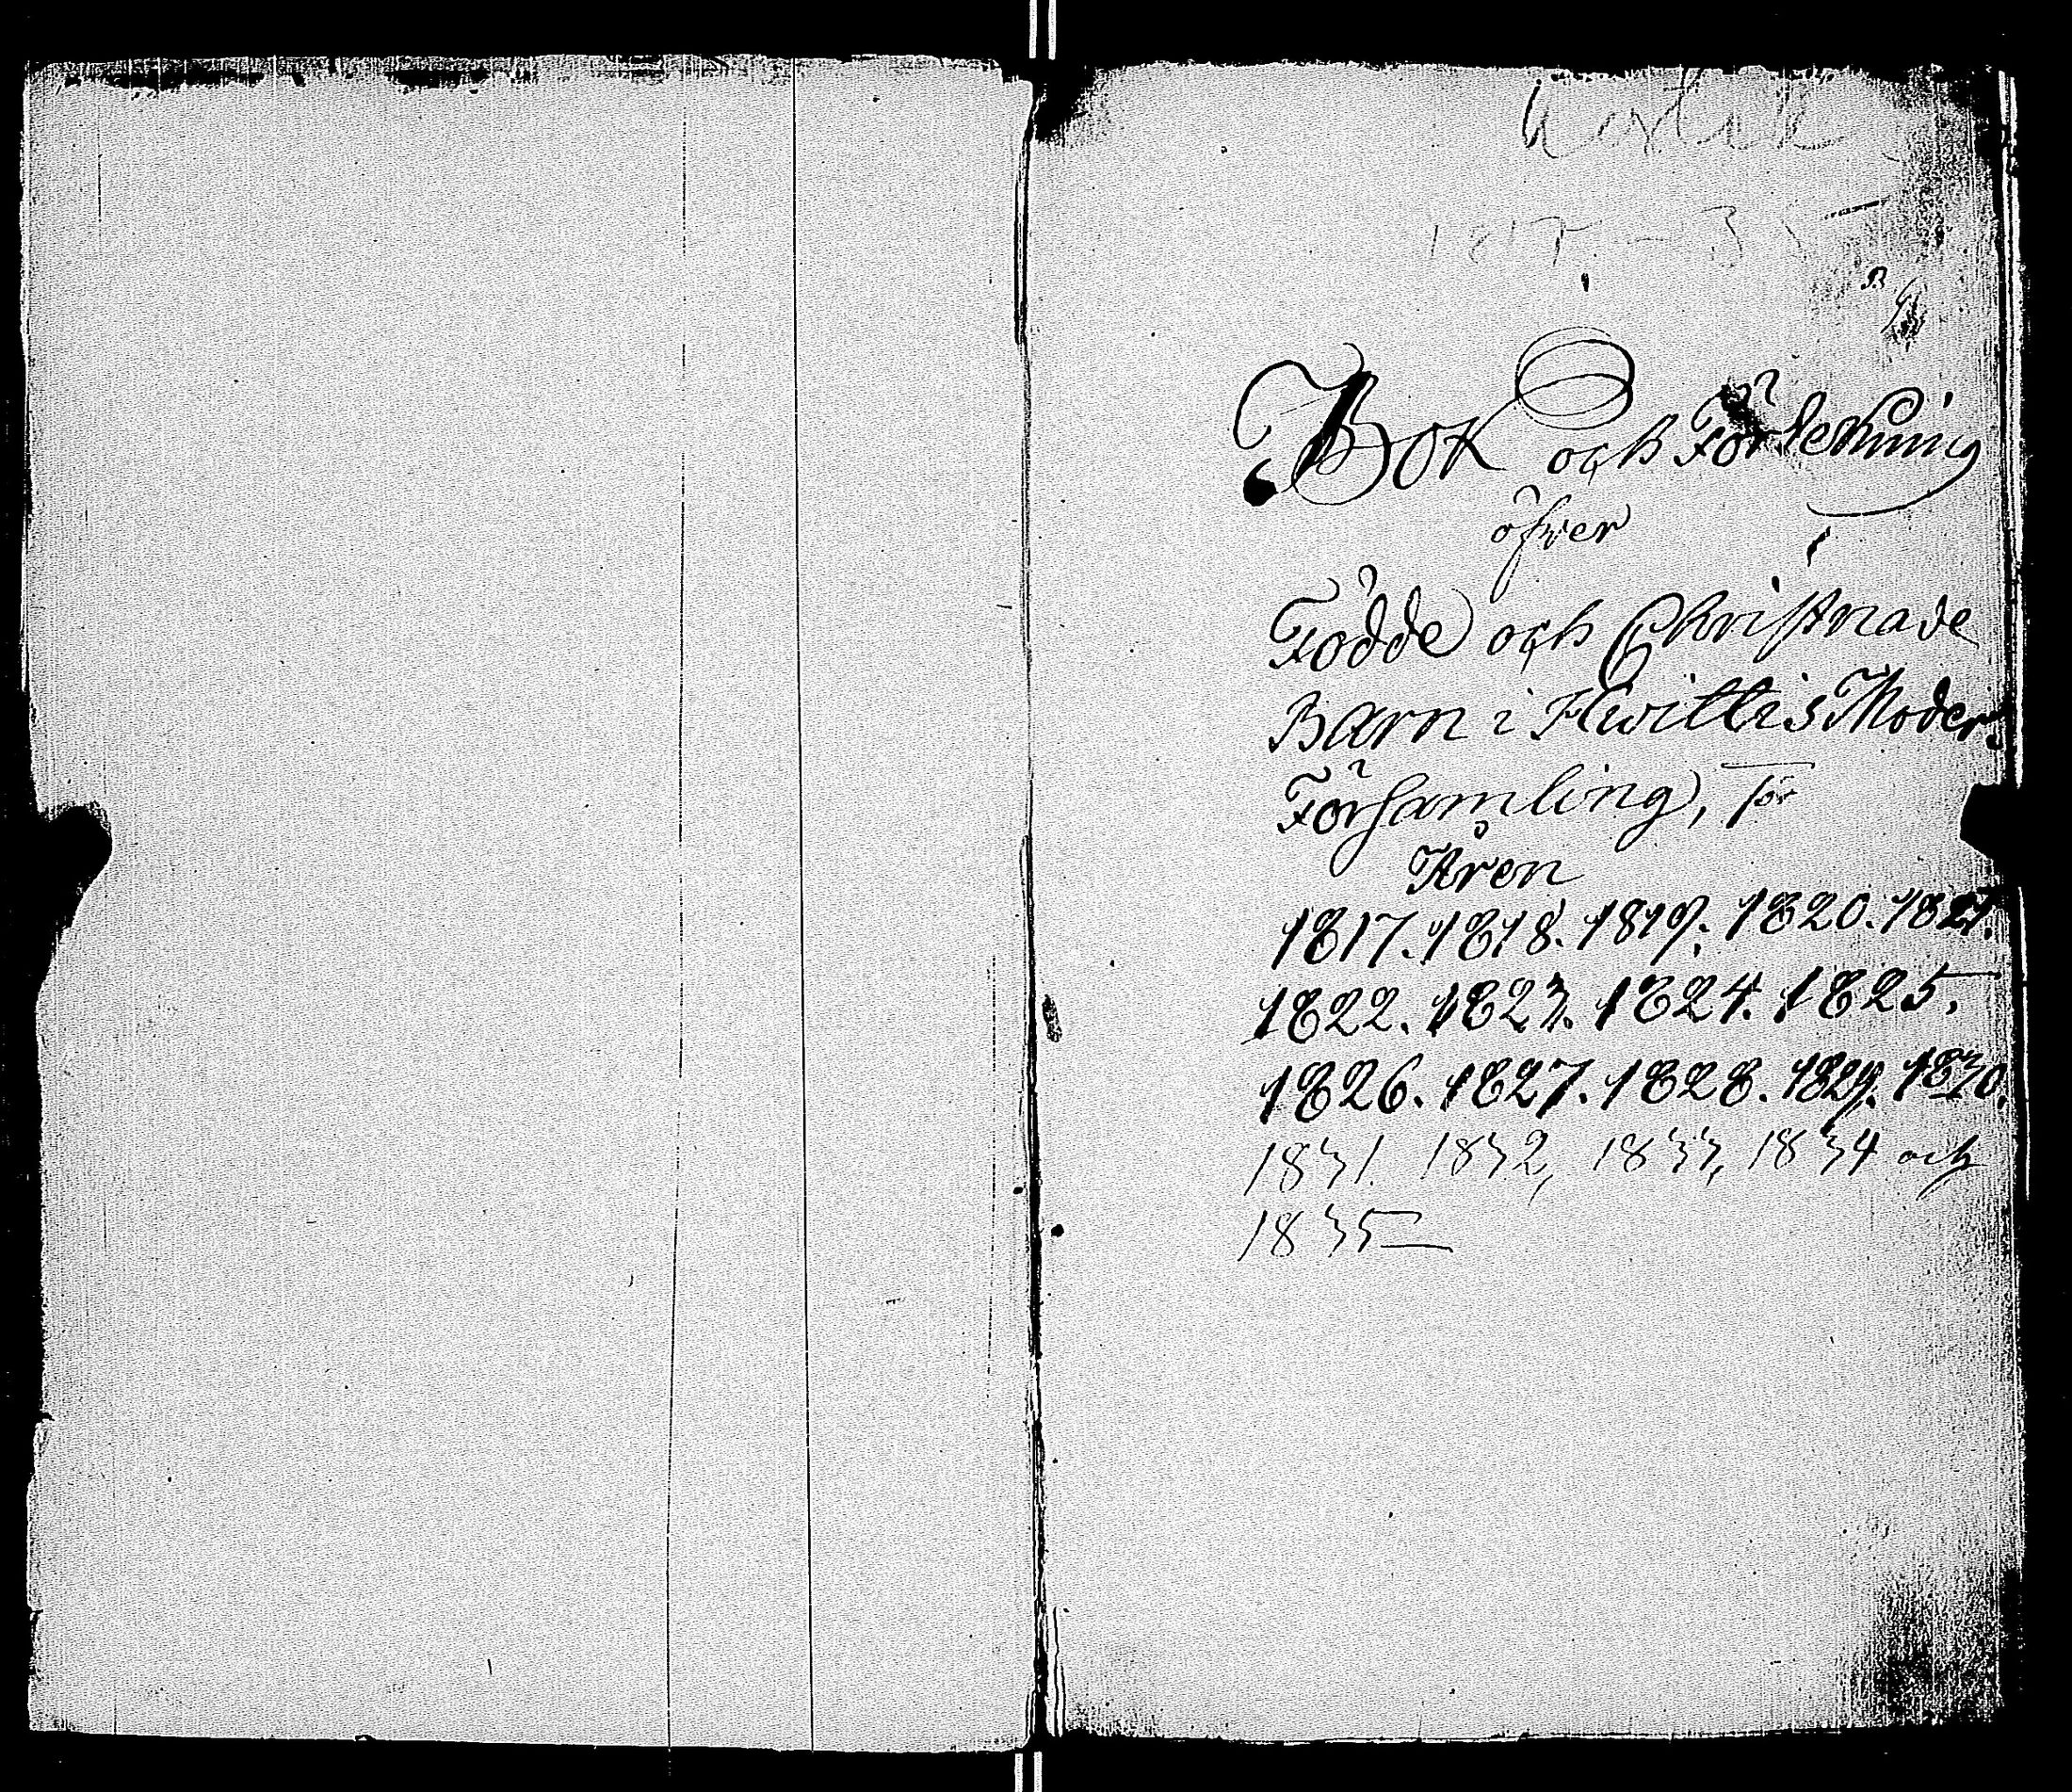 1817 – 35
Bok och Förtekning
öfver
Födde och Christnade
Barn i Hwittis Moder
Församling, för
Åren
1817. 1818. 1819. 1820. 1821.
1822. 1823. 1824. 1825.
1826. 1827. 1828. 1829. 1830.
1831. 1832, 1833, 1834 och
1835